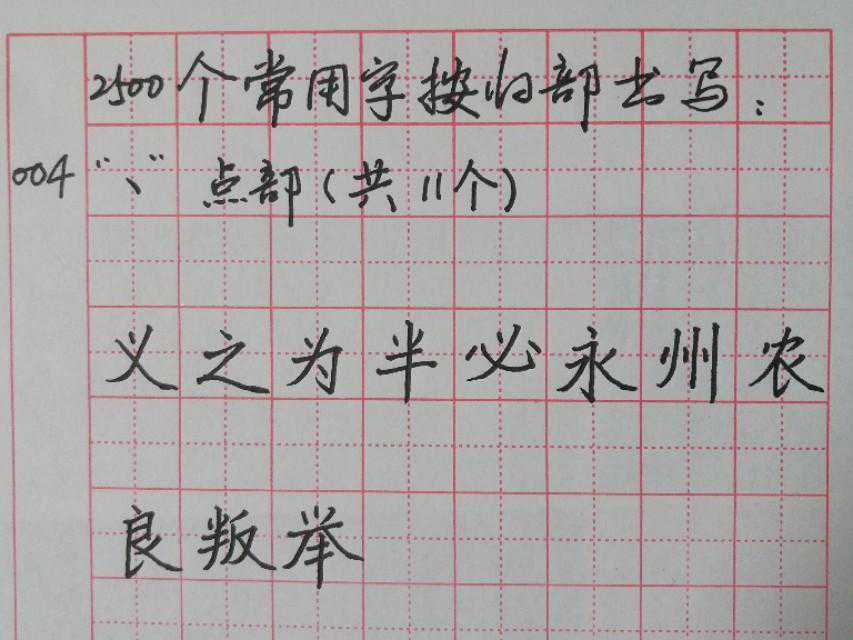 2500个常用字按归部书写：
004 “丶” 点部（共11个）
义之为半必永州农
良叛举